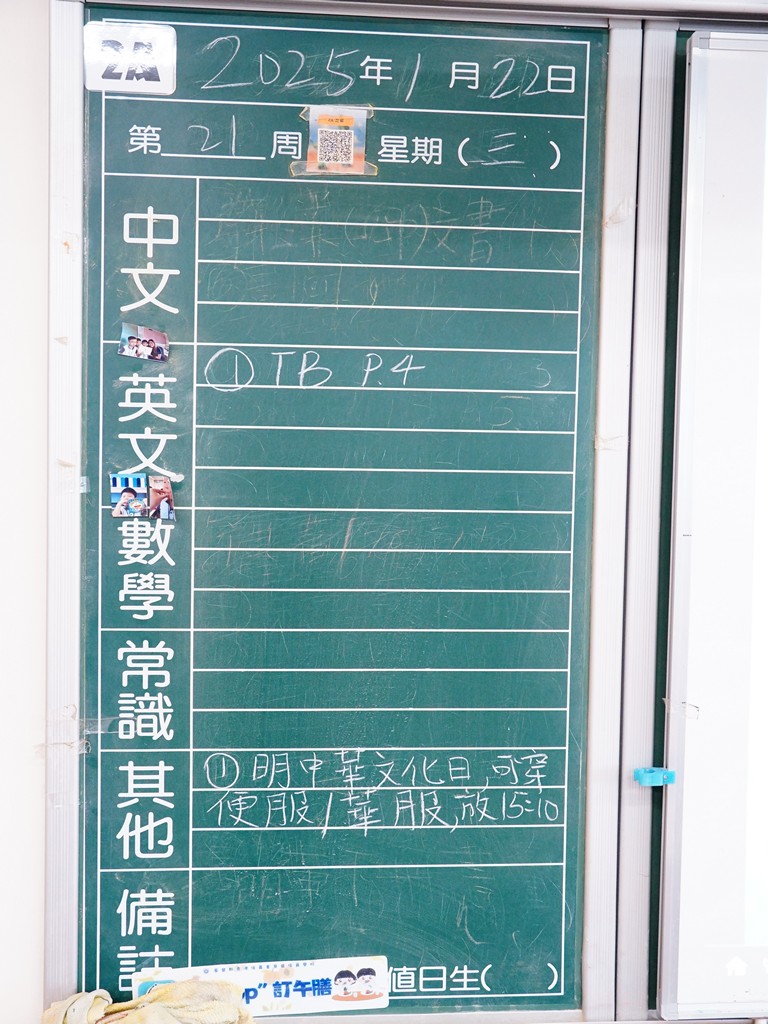 2025年1月22日
第21周 星期(三)
中文
英文
① TB P.4
數學
常識
其他
① 明中華文化日,可穿
便服/華服,放15:10
備註
值日生( )
訂午膳